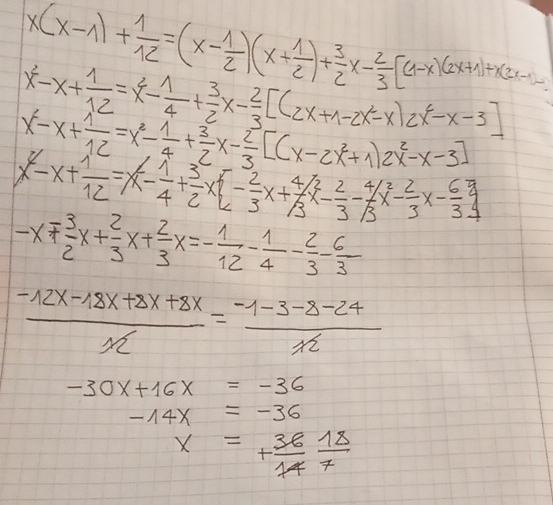 x(x-1)+1/12=(x-1/2)(x+1/2)+3/2x-2/3[(1-x)(2x+1)+x(2x-1)-
x²-x+1/12=x²-1/4+3/2x-2/3[(2x+1-2x²-x)2x²-x-3]
x²-x+1/12=x²-1/4+3/2x-2/3[(x-2x²+1)2x²-x-3]
x²-x+1/12=x²-1/4+3/2x[-2/3x+4/3x²-2/3-4/3x²-2/3x-6/3]
-x-3/2x+2/3x+2/3x=-1/12-1/4-2/3-6/3
-12x-18x+8x+8x/12=-1-3-8-24/12
-30x+16x = -36
-14x = -36
x = +36/14 18/7